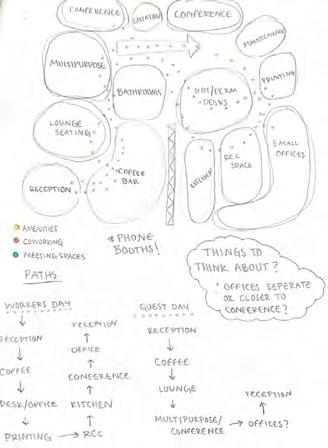 CONFERENCE
CONFERENCE
MAINTENANCE
MULTIPURPOSE
BATHROOMS
HOT/PERM
DESKS
PRINTING
LOUNGE
SEATING
COFFEE
BAR
KITCHEN
REC
SPACE
SMALL
OFFICES
RECEPTION
AMENITIES
COWORKING
MEETING SPACES
* PHONE
BOOTHS!
THINGS TO
THINK ABOUT?
* OFFICES SEPERATE
OR CLOSER TO
CONFERENCE?
PATHS
WORKERS DAY
↓
RECEPTION
↓
COFFEE
↓
DESK/OFFICE
↓
PRINTING → REC
↑
KITCHEN
↑
CONFERENCE
↑
OFFICE
↑
RECEPTION
GUEST DAY
RECEPTION
↓
COFFEE
↓
LOUNGE
↓
MULTIPURPOSE/
CONFERENCE → OFFICES?
↑
RECEPTION